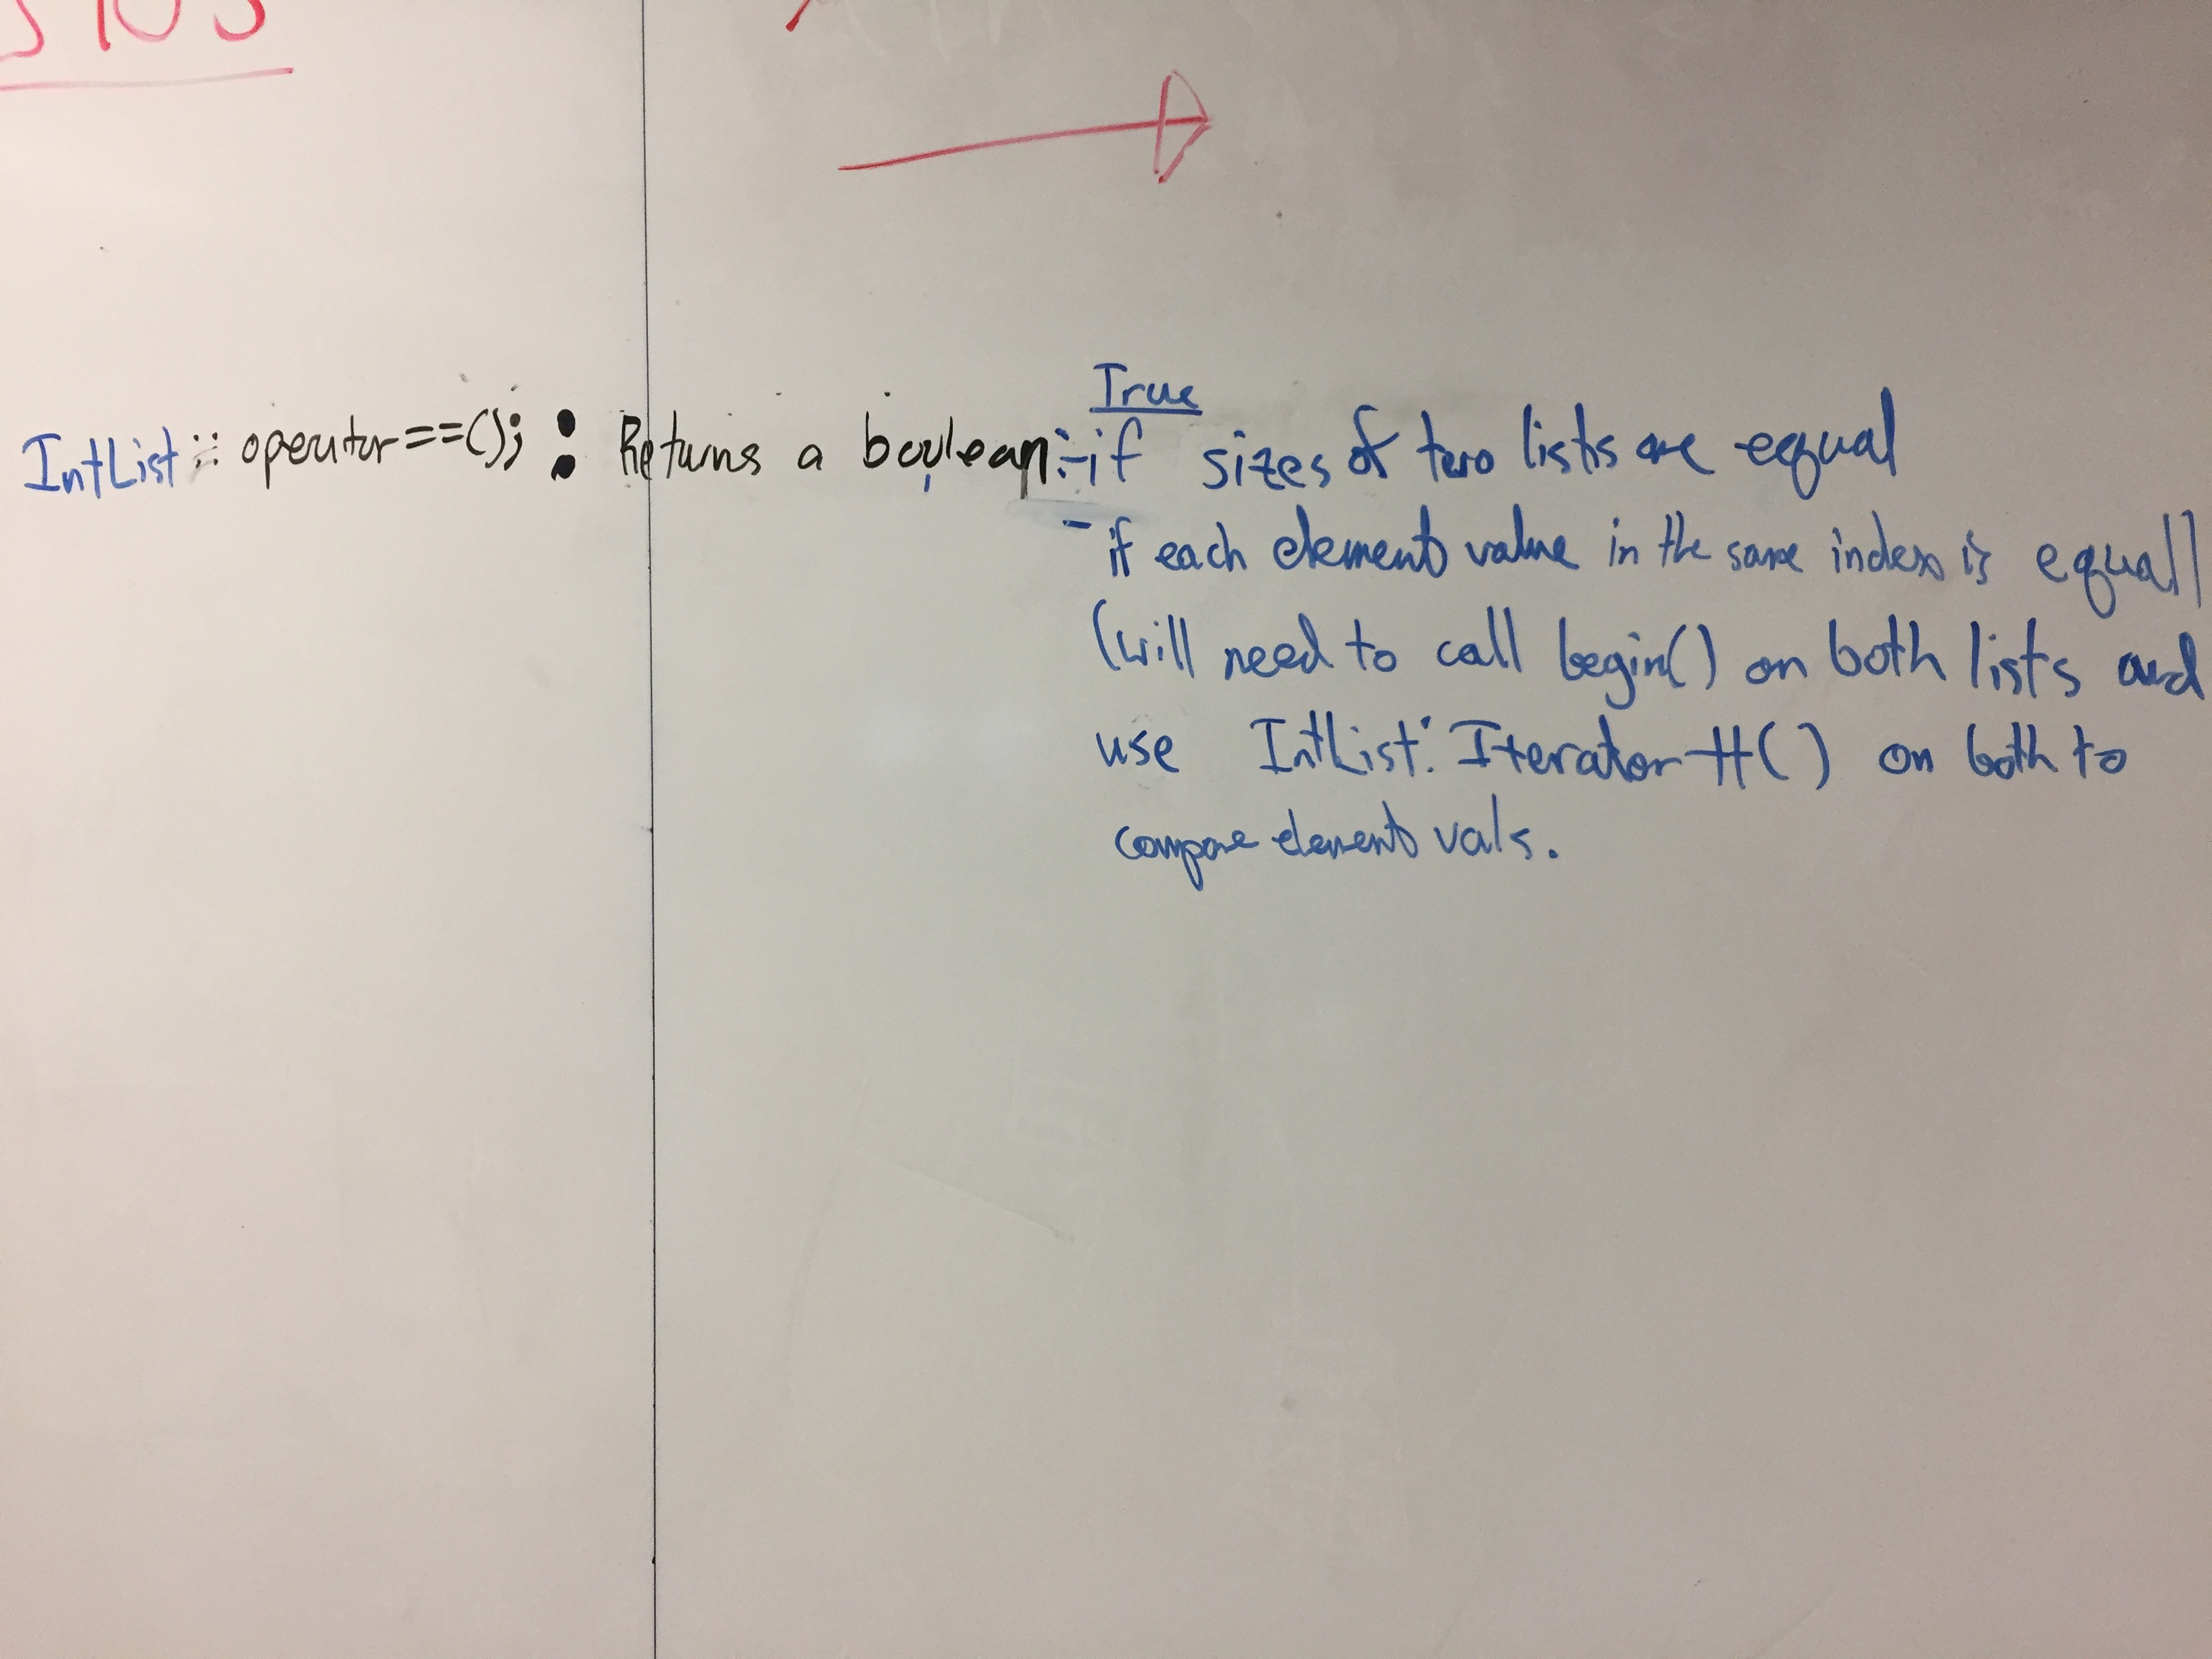 True
IntList :: operator==(); : Returns a boolean: -if sizes of two lists are equal
- if each element value in the same index is equal
(will need to call begin() on both lists and
use IntList:: Iterator ++() on both to
compare element vals.